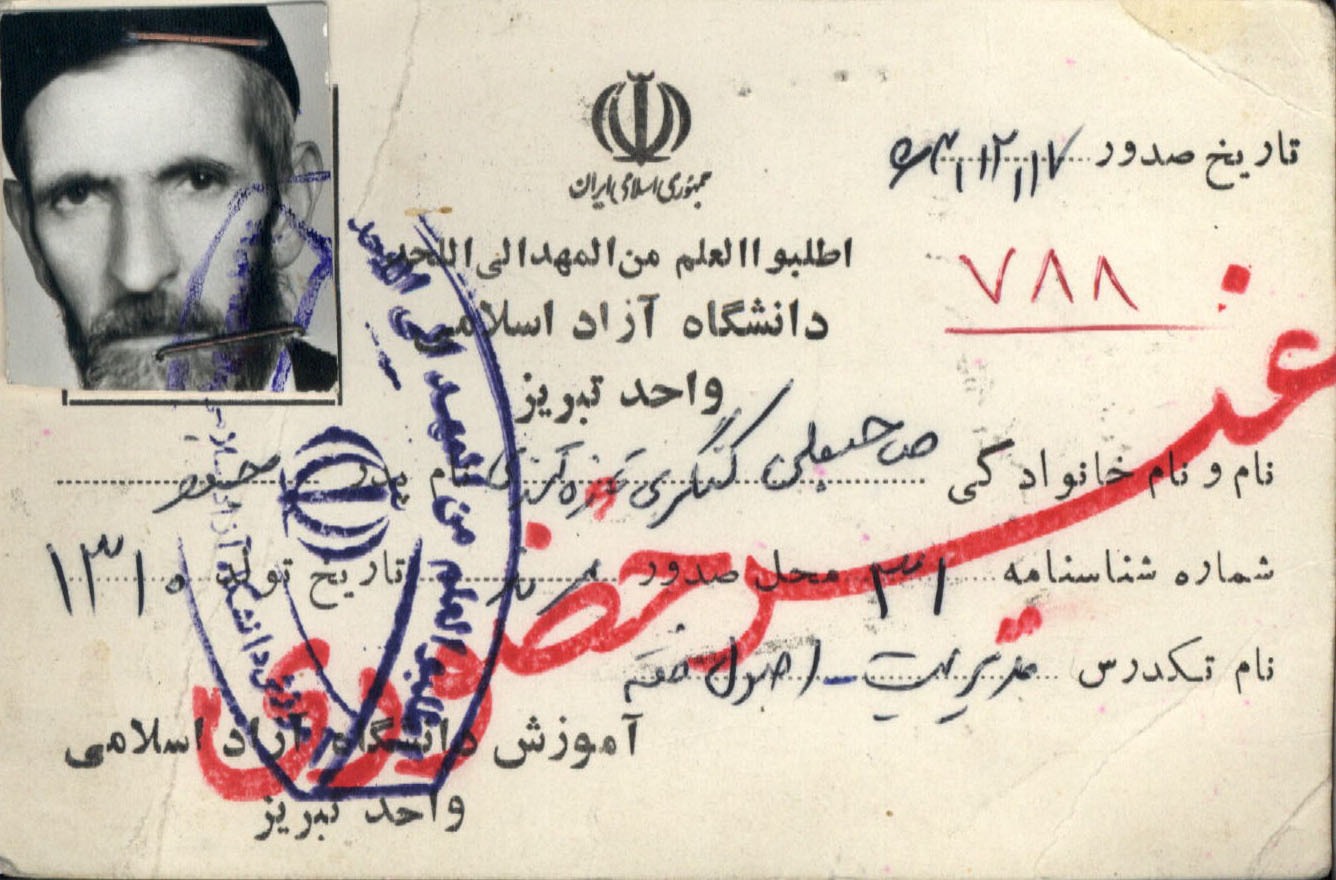 جمهوری اسلامی ایران
تاریخ صدور ۶۴٫۱۲٫۱۷
۷۸۸
اطلبوا العلم من المهد الی اللحد
دانشگاه آزاد اسلامی
واحد تبریز
نام و نام خانوادگی کنگری نام پدر
شماره شناسنامه ۳۱ محل صدور تاریخ تولد ۱۳۱۰
نام تکدرس مدیریت - اصول فقه
غیر حضوری
آموزش دانشگاه آزاد اسلامی
واحد تبریز